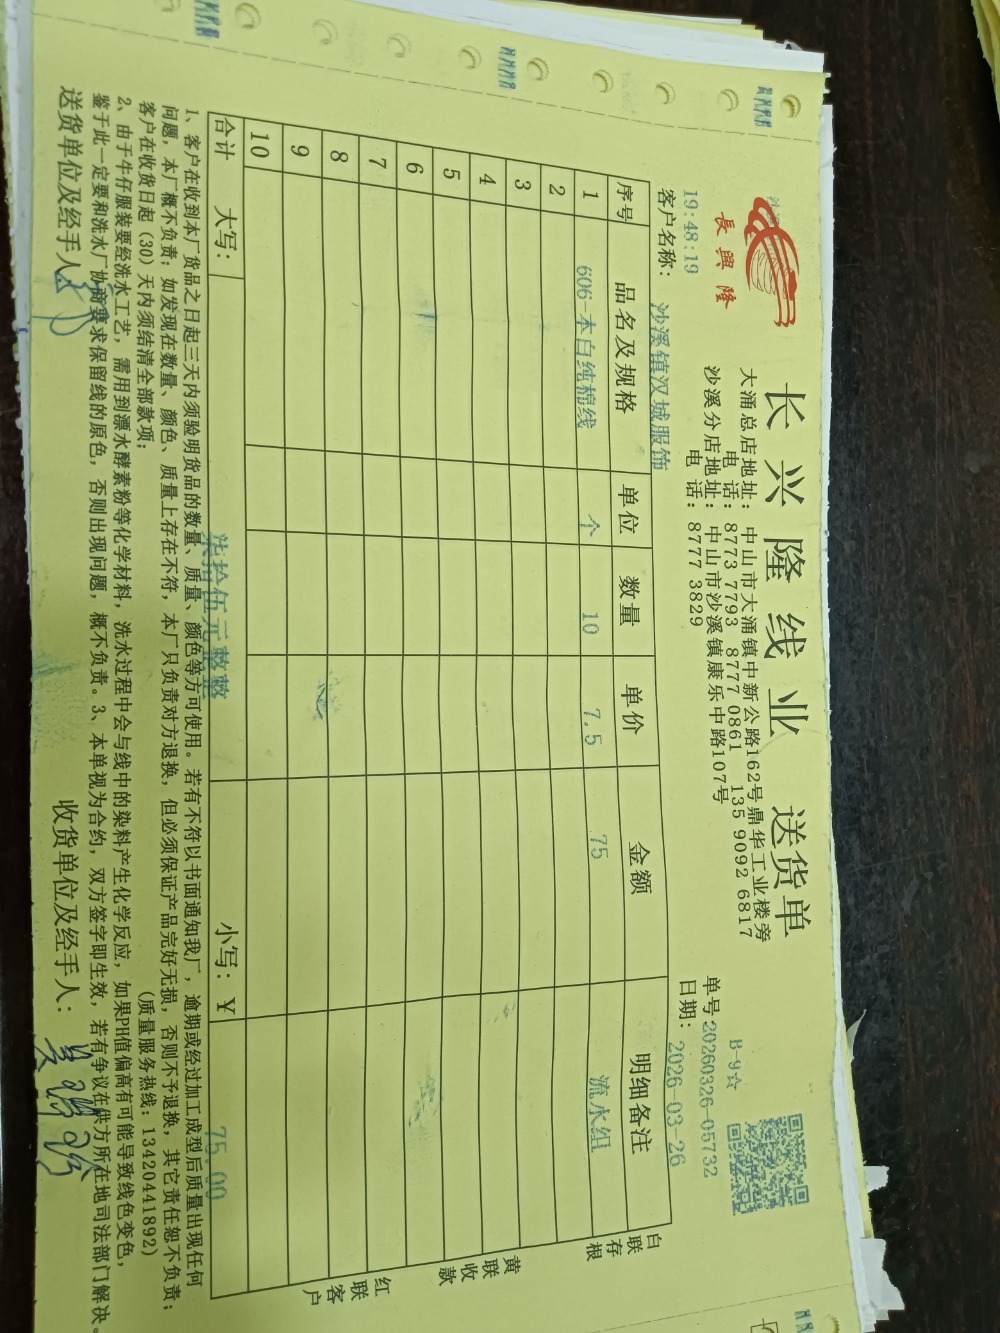 長興隆
长兴隆线业 送货单
大涌总店地址：中山市大涌镇中新公路162号鼎华工业楼旁
电话：8773 7793 8777 0861 135 9092 6817
沙溪分店地址：中山市沙溪镇康乐中路107号
电话：8777 3829
B-9☆
单号：20260326-05732
日期：2026-03-26
19:48:19
客户名称：沙溪镇汉城服饰
序号 品名及规格 单位 数量 单价 金额 明细备注
1 606-本白纯棉线 个 10 7.5 75 流水组
2
3
4
5
6
7
8
9
10
合计 大写：柒拾伍元整整 小写：¥ 75.00
白联存根
黄联收款
红联客户
1、客户在收到本厂货品之日起三天内须验明货品的数量、质量、颜色等方可使用。若有不符以书面通知我厂，逾期或经过加工成型后质量出现任何
问题，本厂概不负责；如发现在数量、颜色、质量上存在不符，本厂只负责对方退换，但必须保证产品完好无损，否则不予退换，其它责任恕不负责；
客户在收货日起（30）天内须结清全部款项；（质量服务热线：13420441892）
2、由于牛仔服装要经洗水工艺，需用到漂水酵素粉等化学材料，洗水过程中会与线中的染料产生化学反应，如果PH值偏高有可能导致线色变色，
鉴于此一定要和洗水厂协商要求保留线的原色，否则出现问题，概不负责。3、本单视为合约，双方签字即生效，若有争议在供方所在地司法部门解决。
送货单位及经手人： 收货单位及经手人：